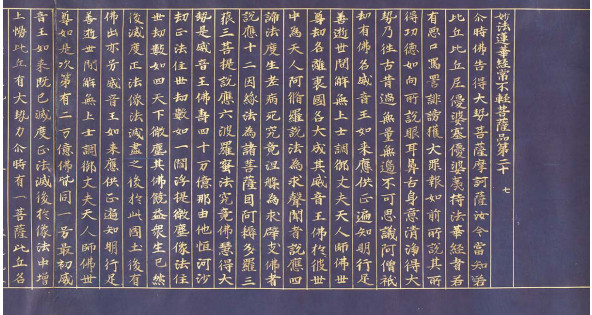 妙法蓮華經常不輕菩薩品第二十 七
尒時佛告得大勢菩薩摩訶薩汝今當知若
比丘比丘尼優婆塞優婆夷持法華經者若
有惡口罵詈誹謗獲大罪報如前所說其所
得功德如向所說眼耳鼻舌身意清淨得大
勢乃往古昔過無量無邊不可思議阿僧祇
劫有佛名威音王如來應供正遍知明行足
善逝世間解無上士調御丈夫天人師佛世
尊劫名離衰國名大成其威音王佛於彼世
中為天人阿脩羅說法為求聲聞者說應四
諦法度生老病死究竟涅槃為求辟支佛者
說應十二因緣法為諸菩薩因阿耨多羅三
藐三菩提說應六波羅蜜法究竟佛慧得大
勢是威音王佛壽四十萬億那由他恒河沙
劫正法住世劫數如一閻浮提微塵像法住
世劫數如四天下微塵其佛饒益衆生已然
後滅度正法像法滅盡之後於此國土復有
佛出亦号威音王如來應供正遍知明行足
善逝世間解無上士調御丈夫天人師佛世
尊如是次第有二万億佛皆同一号最初威
音王如來既已滅度正法滅後於像法中增
上慢比丘有大勢力尒時有一菩薩比丘名